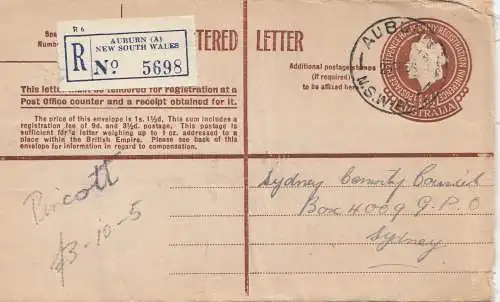 R 6
AUBURN (A)
NEW SOUTH WALES
R No 5698
Spe
Numbe
TERED LETTER
Additional postage stamps
(if required)
to be affixed here
AUBU
N.S.W.
AUSTRALIA
This letter must be tendered for registration at a
Post Office counter and a receipt obtained for it.
The price of this envelope is 1s. 1½d. This sum includes a
registration fee of 9d. and 3½d. postage. This postage is
sufficient for a letter weighing up to 1 oz. addressed to a
place within the British Empire. Please see back of this
envelope for information in regard to compensation.
Pincott
£3-10-5
Sydney County Council
Box 4009 G.P.O
Sydney